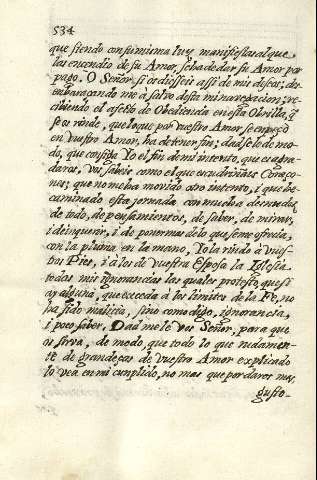 534
que siendo con suimisma luz manifiestas al que
las encendio de su Amor, se ha de dar su Amor por
pago. O Señor, si os diesseis assi de mis deseos; des-
enbaraçando me à salvo desta mi navegacion; re-
cibiendo el afecto de Obediencia en esta Obrilla, q̃
se os rinde, que lo que por vuestro Amor, se enpeçò
en vuestro Amor, ha de tener fin; dadselo de mo-
do, que consiga Yo el fin de mi intento, que es agra-
daros, vos sabeis como el que escudriñais Coraço-
nes; que no me ha movido otro intento, i que he
caminado esta jornada con mucha desnudez
de todo, de pensamientos, de saber, de mirar,
i de inquerir, i de ponermas de lo que se me ofrecia,
con la pluma en la mano, Yo la rindo à vues-
tros Pies, i à los de vuestra Esposa la Iglesia
todas mis ignorancias las quales protesto que si
ay alguna, que exceda à los limites de la Fe, no
ha sido malicia, sino como digo, ignorancia,
i poco saber. Dad me le vos Señor, para que
os sirva, de modo, que todo lo que rudamen-
te de grandeças de vuestro Amor è explicado
lo vea en mi cunplido, no mas que por daros mas
gusto-